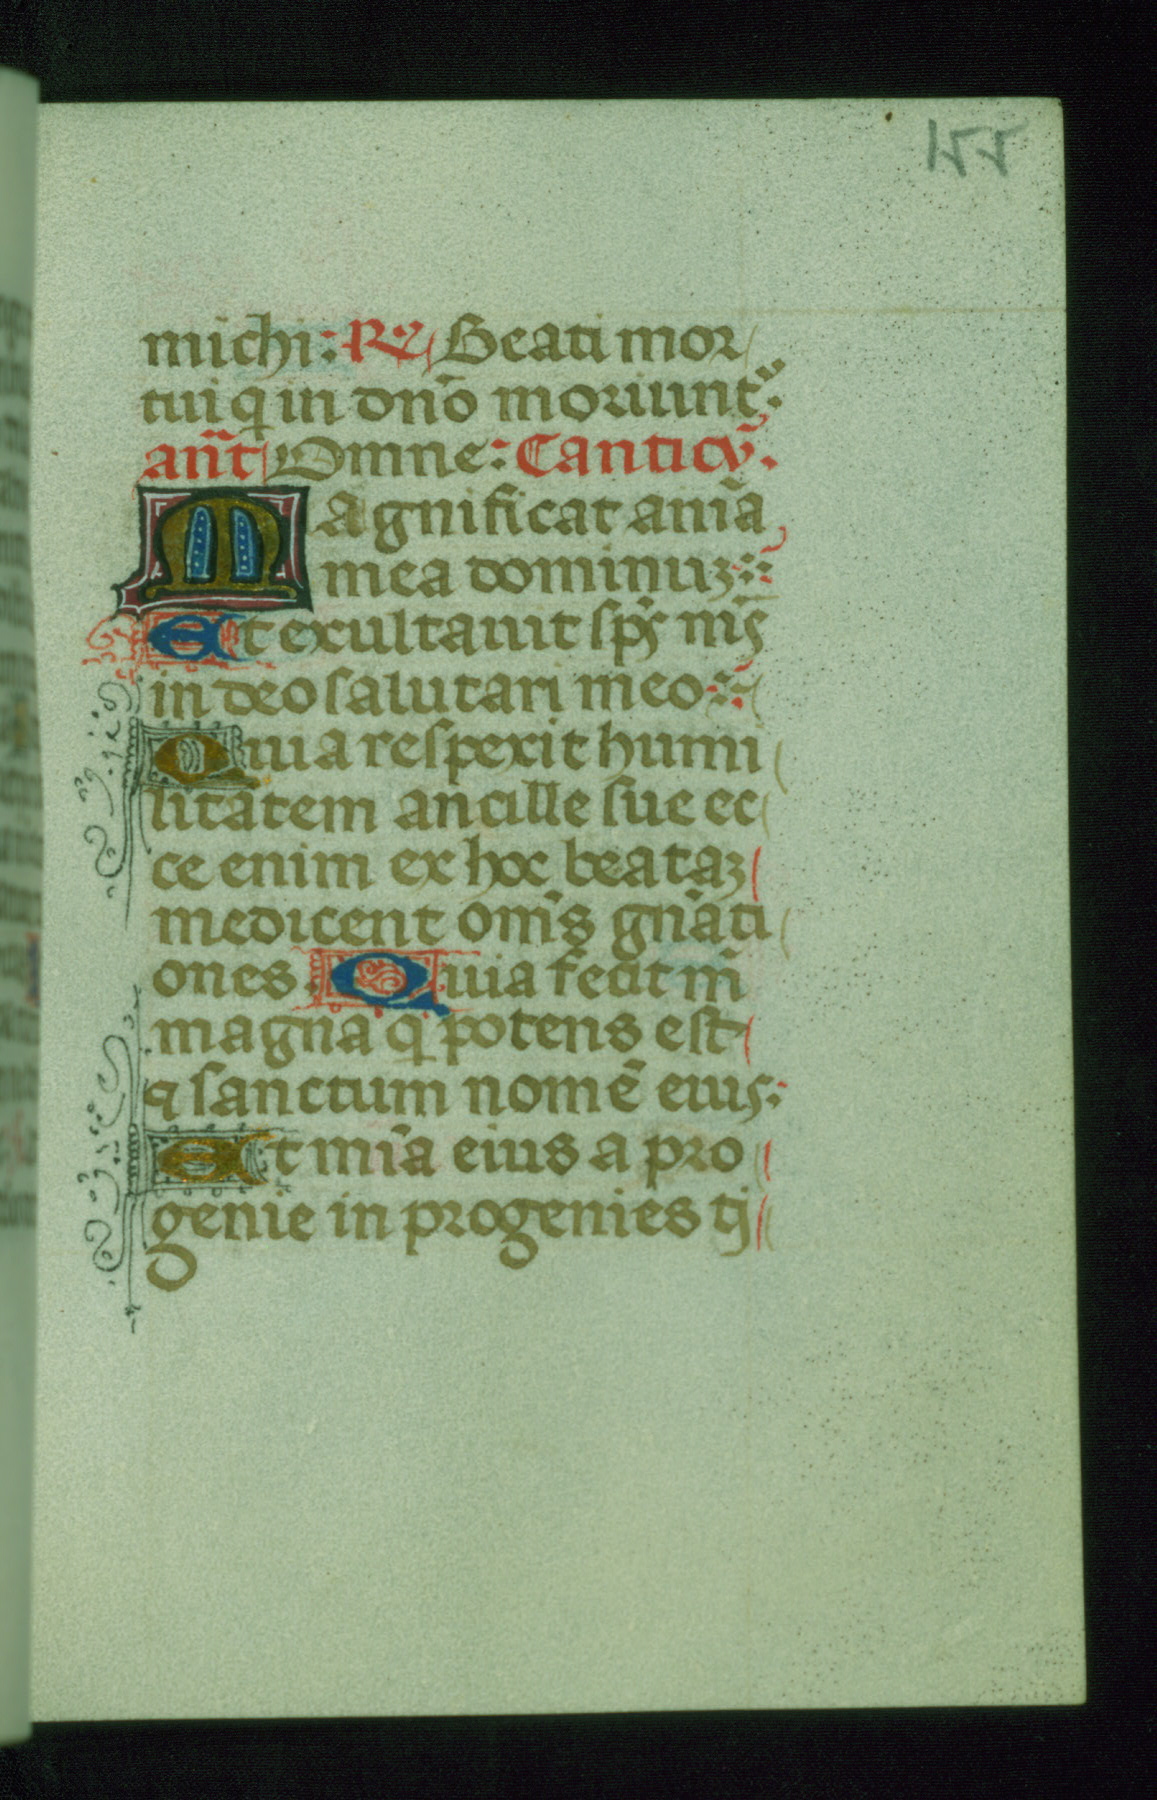 155
michi: R℣ Beati mor
tui q̄ in dn̄o moriunt:
an̄t Omne: Canticū.
Magnificat anīa
mea dominuꝫ:
Et exultauit sp̄s m̄s
in deo salutari meo:
Quia respexit humi
litatem ancille sue ec
ce enim ex hoc beataꝫ
medicent om̄s gn̄ati
ones. Quia fecit m̄
magna q̄ potens est
ꝗ sanctum nomē eius:
Et mīa eius a pro
genie in progenies tj